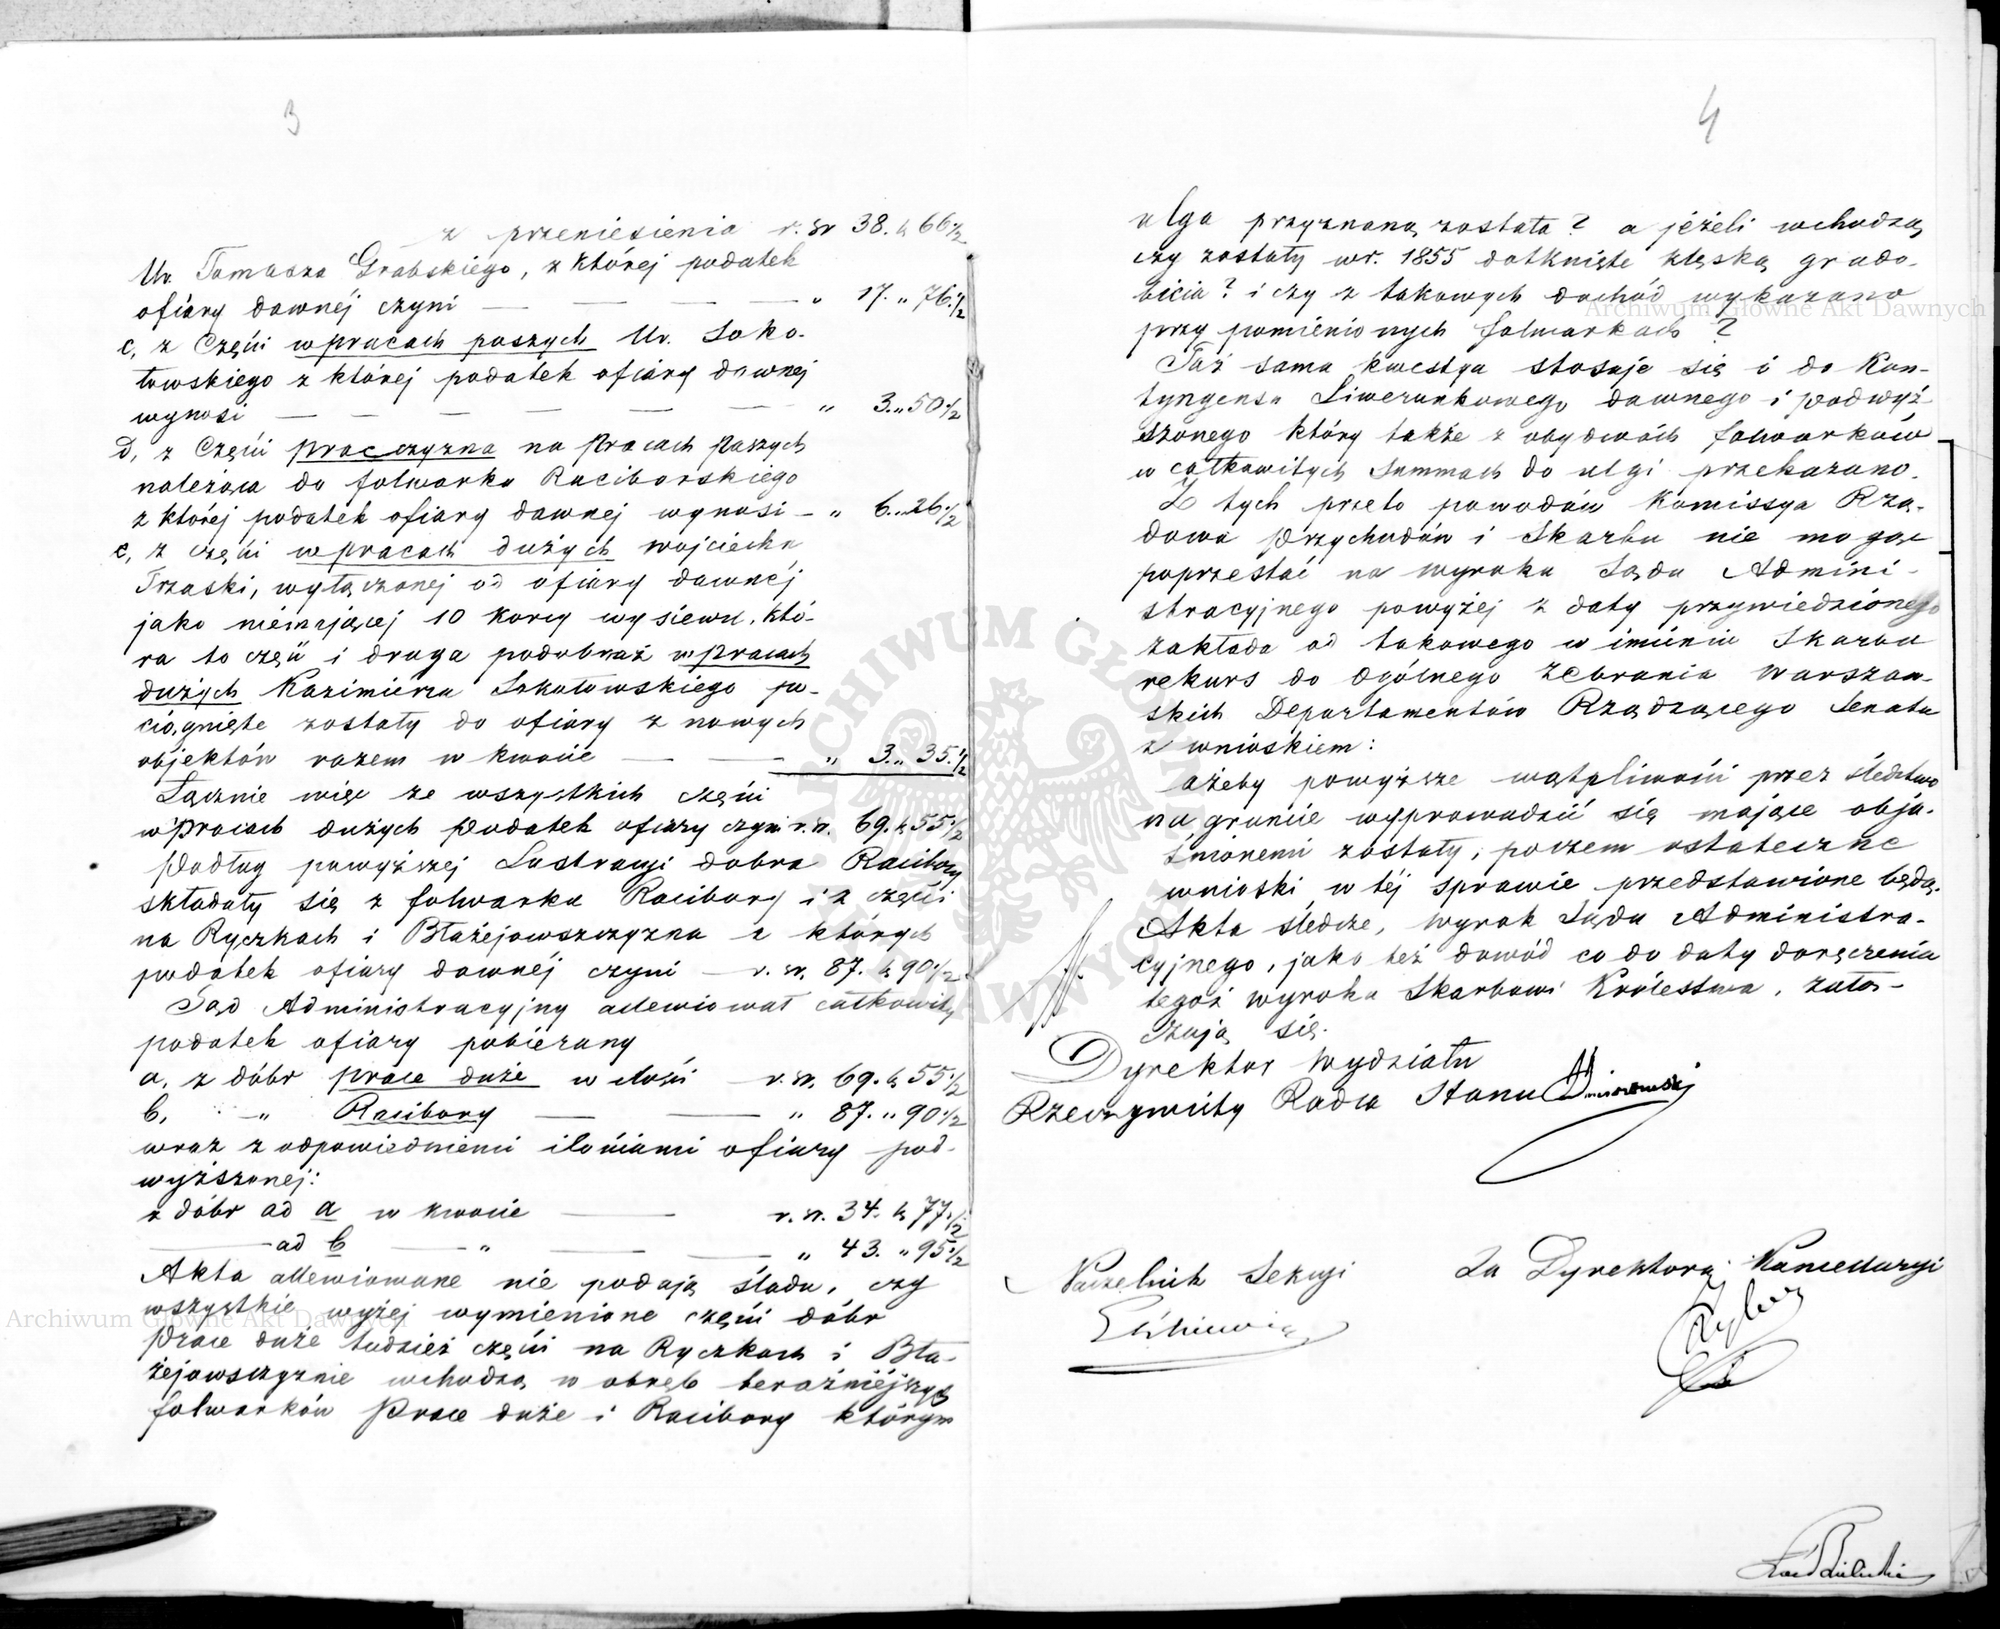 3
z przeniesienia r. sr. 38. k 66 1/2
Ur. Tomasza Grabskiego, z której podatek
ofiary dawnéj czyni — — — — " 17. " 76 1/2
c, z Części w Pracach paszych Ur. Soko-
łowskiego z której podatek ofiary dawnej
wynosi — — — — — — " 3. " 50 1/2
D, z Części Pracczyzna na Pracach Paszych
należąca do folwarku Raciborskiego
z której podatek ofiary dawnej wynosi — " 6. " 26 1/2
e, z części w Pracach dużych Wojciecha
Trzaski, wyłączonej od ofiary dawnéj
jako niemającej 10 korcy wysiewu, któ-
ra to część i druga podobnaż w Pracach
dużych Kazimierza Sokołowskiego po-
ciągnięte zostały do ofiary z nowych
objektów razem w kwocie — — " 3. " 35. 1/2
Łącznie więc ze wszystkich części
w Pracach dużych Podatek ofiary czyni r. sr. 69. k 55 1/2
Podług powyższej Lustracyi dobra Racibory
składały się z folwarku Racibory i z części
na Ryczkach i Błażejowszczyzna z których
podatek ofiary dawnéj czyni — r. sr. 87. k 90 1/2
Sąd Administracyjny allewiował całkowity
podatek ofiary pobierany
a. z dóbr Prace duże w ilości — r. sr. 69. k 55 1/2
b, " Racibory — — " 87. " 90 1/2
wraz z odpowiedniemi ilościami ofiary pod-
wyższonej:
z dóbr ad a w kwocie — r. sr. 34. k 77. 1/2
— ad b — " — — " 43. " 95 1/2
Akta allewiowane nie podają śladu, czy
wszystkie wyżej wymienione części dóbr
Prace duże tudzież części na Ryczkach i Bła-
żejowszczyznie wchodzą w obręb teraźniéjszych
folwarków Prace duże i Racibory którym
4
ulga przyznaną została? a jeżeli wchodzą
czy zostały w r. 1855 dotknięte klęską grado-
bicia? i czy z takowych dochód wykazano
przy pomienionych folwarkach?
Taż sama kwestya stosuje się i do Kon-
tyngensu Liwerunkowego dawnego i podwyż-
szonego który także z obydwóch folwarków
w całkowitych summach do ulgi przekazano.
Z tych przeto powodów Komissya Rzą-
dowa Przychodów i Skarbu nie mogąc
poprzestać na wyroku Sądu Admini-
stracyjnego powyżej z daty przywiedzionego
zakłada od takowego w imieniu Skarbu
rekurs do Ogólnego Zebrania Warszaw-
skich Departamentów Rządzącego Senatu
z wnioskiem:
ażeby powyższe wątpliwości przez śledztwo
na gruncie wyprowadzić się mające obja-
śnionemi zostały, poczem ostateczne
wnioski w téj sprawie przedstawione będą.
Akta śledcze, wyrok Sądu Administra-
cyjnego, jako też dowód co do daty doręczenia
tegoż wyroku Skarbowi Królestwa, załą-
czają się.
Dyrektor Wydziału
Rzeczywisty Radca Stanu
Naczelnik Sekcyi
Za Dyrektora Kancellaryi
Archiwum Główne Akt Dawnych
Archiwum Główne Akt Dawnych
ARCHIWUM GŁÓWNE AKT DAWNYCH